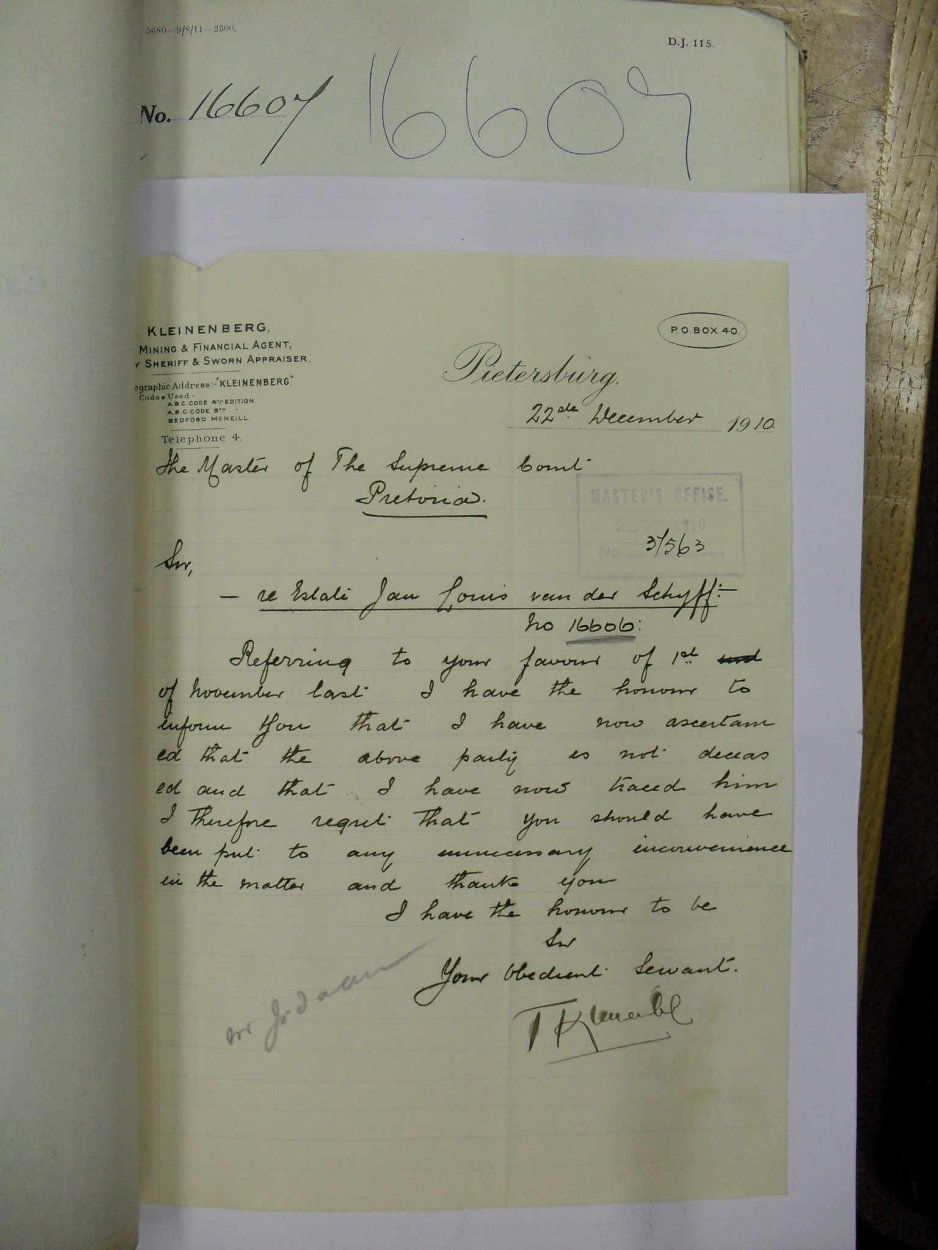 5680—9/8/11—2500.
D.J. 115.
No. 16607
16607
. KLEINENBERG,
MINING & FINANCIAL AGENT,
Y SHERIFF & SWORN APPRAISER.
egraphic Address:-"KLEINENBERG."
Codes Used-
A.B.C. CODE 4TH EDITION.
A.B.C. CODE 5TH "
BEDFORD MCNEILL.
Telephone 4.
P.O BOX 40.
Pietersburg,
22nde December 1910
The Master of The Supreme Court
Pretoria.
MASTER'S OFFICE.
1910
No.
3/563
Sir,
— re Estate Jan Louis van der Schyff:—
No 16606:
Referring to your favour of 1st
of November last I have the honour to
inform you that I have now ascertain
ed that the above party is not deceas
ed and that I have now traced him
I therefore regret that you should have
been put to any unnecessary inconvenience
in the matter and thank you
I have the honour to be
Sir
Your Obedient Servant.
mr Jordaan